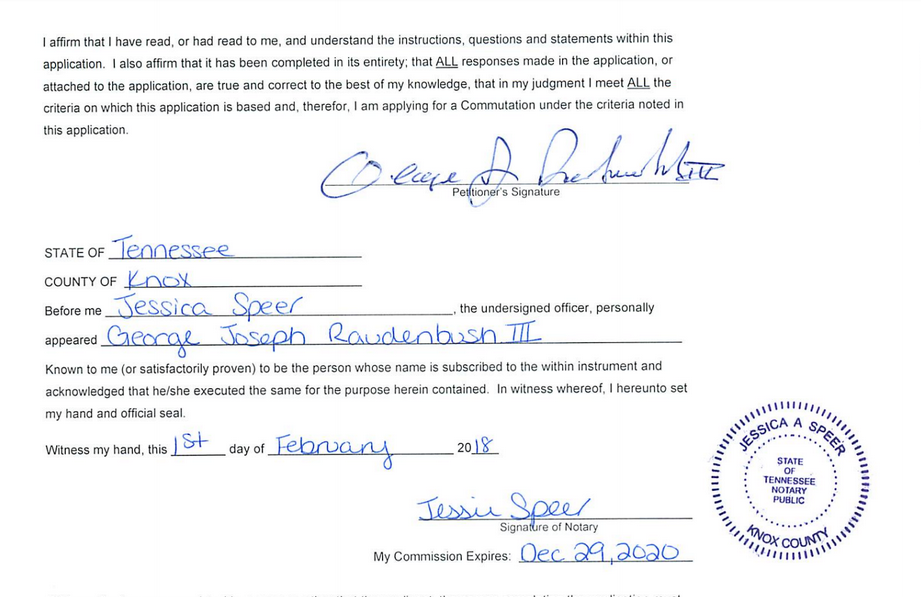 I affirm that I have read, or had read to me, and understand the instructions, questions and statements within this
application.  I also affirm that it has been completed in its entirety; that ALL responses made in the application, or
attached to the application, are true and correct to the best of my knowledge, that in my judgment I meet ALL the
criteria on which this application is based and, therefor, I am applying for a Commutation under the criteria noted in
this application.
Petitioner's Signature
STATE OF Tennessee
COUNTY OF Knox
Before me Jessica Speer, the undersigned officer, personally
appeared George Joseph Raudenbush III
Known to me (or satisfactorily proven) to be the person whose name is subscribed to the within instrument and
acknowledged that he/she executed the same for the purpose herein contained.  In witness whereof, I hereunto set
my hand and official seal.
Witness my hand, this 1st day of February 2018
Jessie Speer
Signature of Notary
My Commission Expires: Dec 29, 2020
JESSICA A SPEER
STATE
OF
TENNESSEE
NOTARY
PUBLIC
KNOX COUNTY